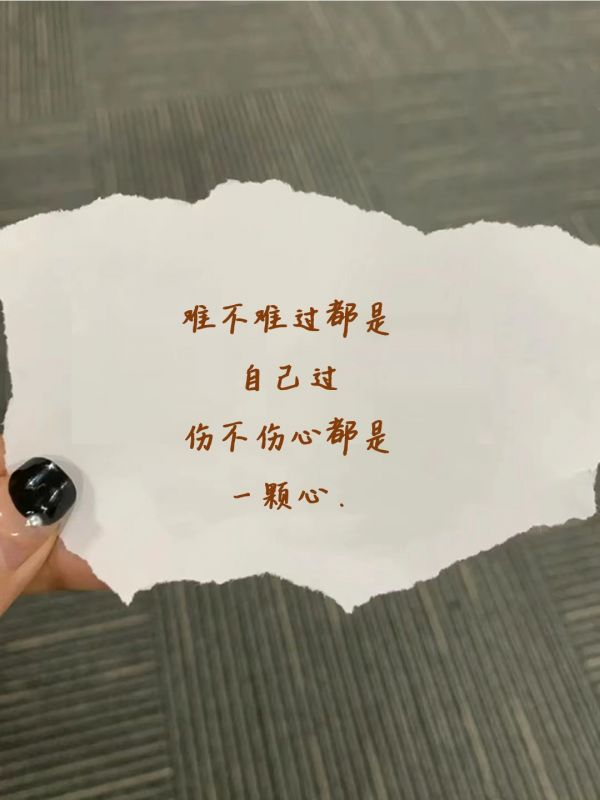 难不难过都是
自己过
伤不伤心都是
一颗心.